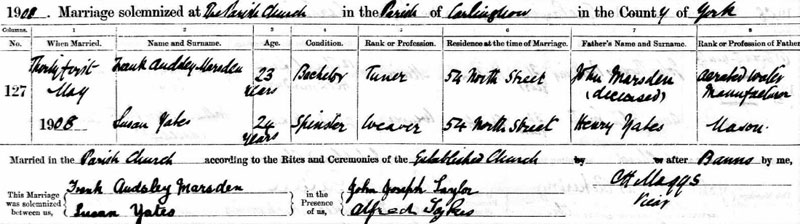 1908. Marriage solemnized at The Parish Church in the Parish of Carlinghow in the County of York
Columns. 1 2 3 4 5 6 7 8
No. When Married. Name and Surname. Age. Condition. Rank or Profession. Residence at the time of Marriage. Father's Name and Surname. Rank or Profession of Father
127 Thirty first May 1908
Frank Audsley Marsden 23 years Bachelor Tuner 54 North Street John Marsden (deceased) aerated water Manufacturer
Susan Yates 24 years Spinster Weaver 54 North Street Henry Yates Mason.
Married in the Parish Church according to the Rites and Ceremonies of the Established Church by or after Banns by me,
This Marriage was solemnized between us, Frank Audsley Marsden Susan Yates in the Presence of us, John Joseph Taylor Alfred Sykes
CH Maggs
Vicar